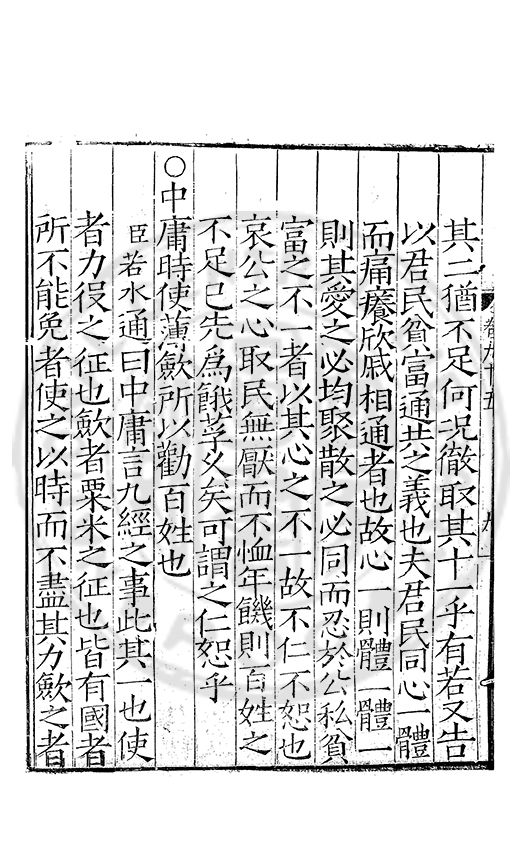 其二猶不足何况徹取其十一乎有若又告
以君民貧富通共之義也夫君民同心一體
而痛癢欣戚相通者也故心一則體一體一
則其愛之必均聚散之必同而忍於公私貧
富之不一者以其心之不一故不仁不恕也
哀公之心取民無厭而不恤年饑則百姓之
不足已先爲餓莩久矣可謂之仁恕乎
○中庸時使薄斂所以勸百姓也
臣若水通曰中庸言九經之事此其一也使
者力役之征也斂者粟米之征也皆有國者
所不能免者使之以時而不盡其力斂之者